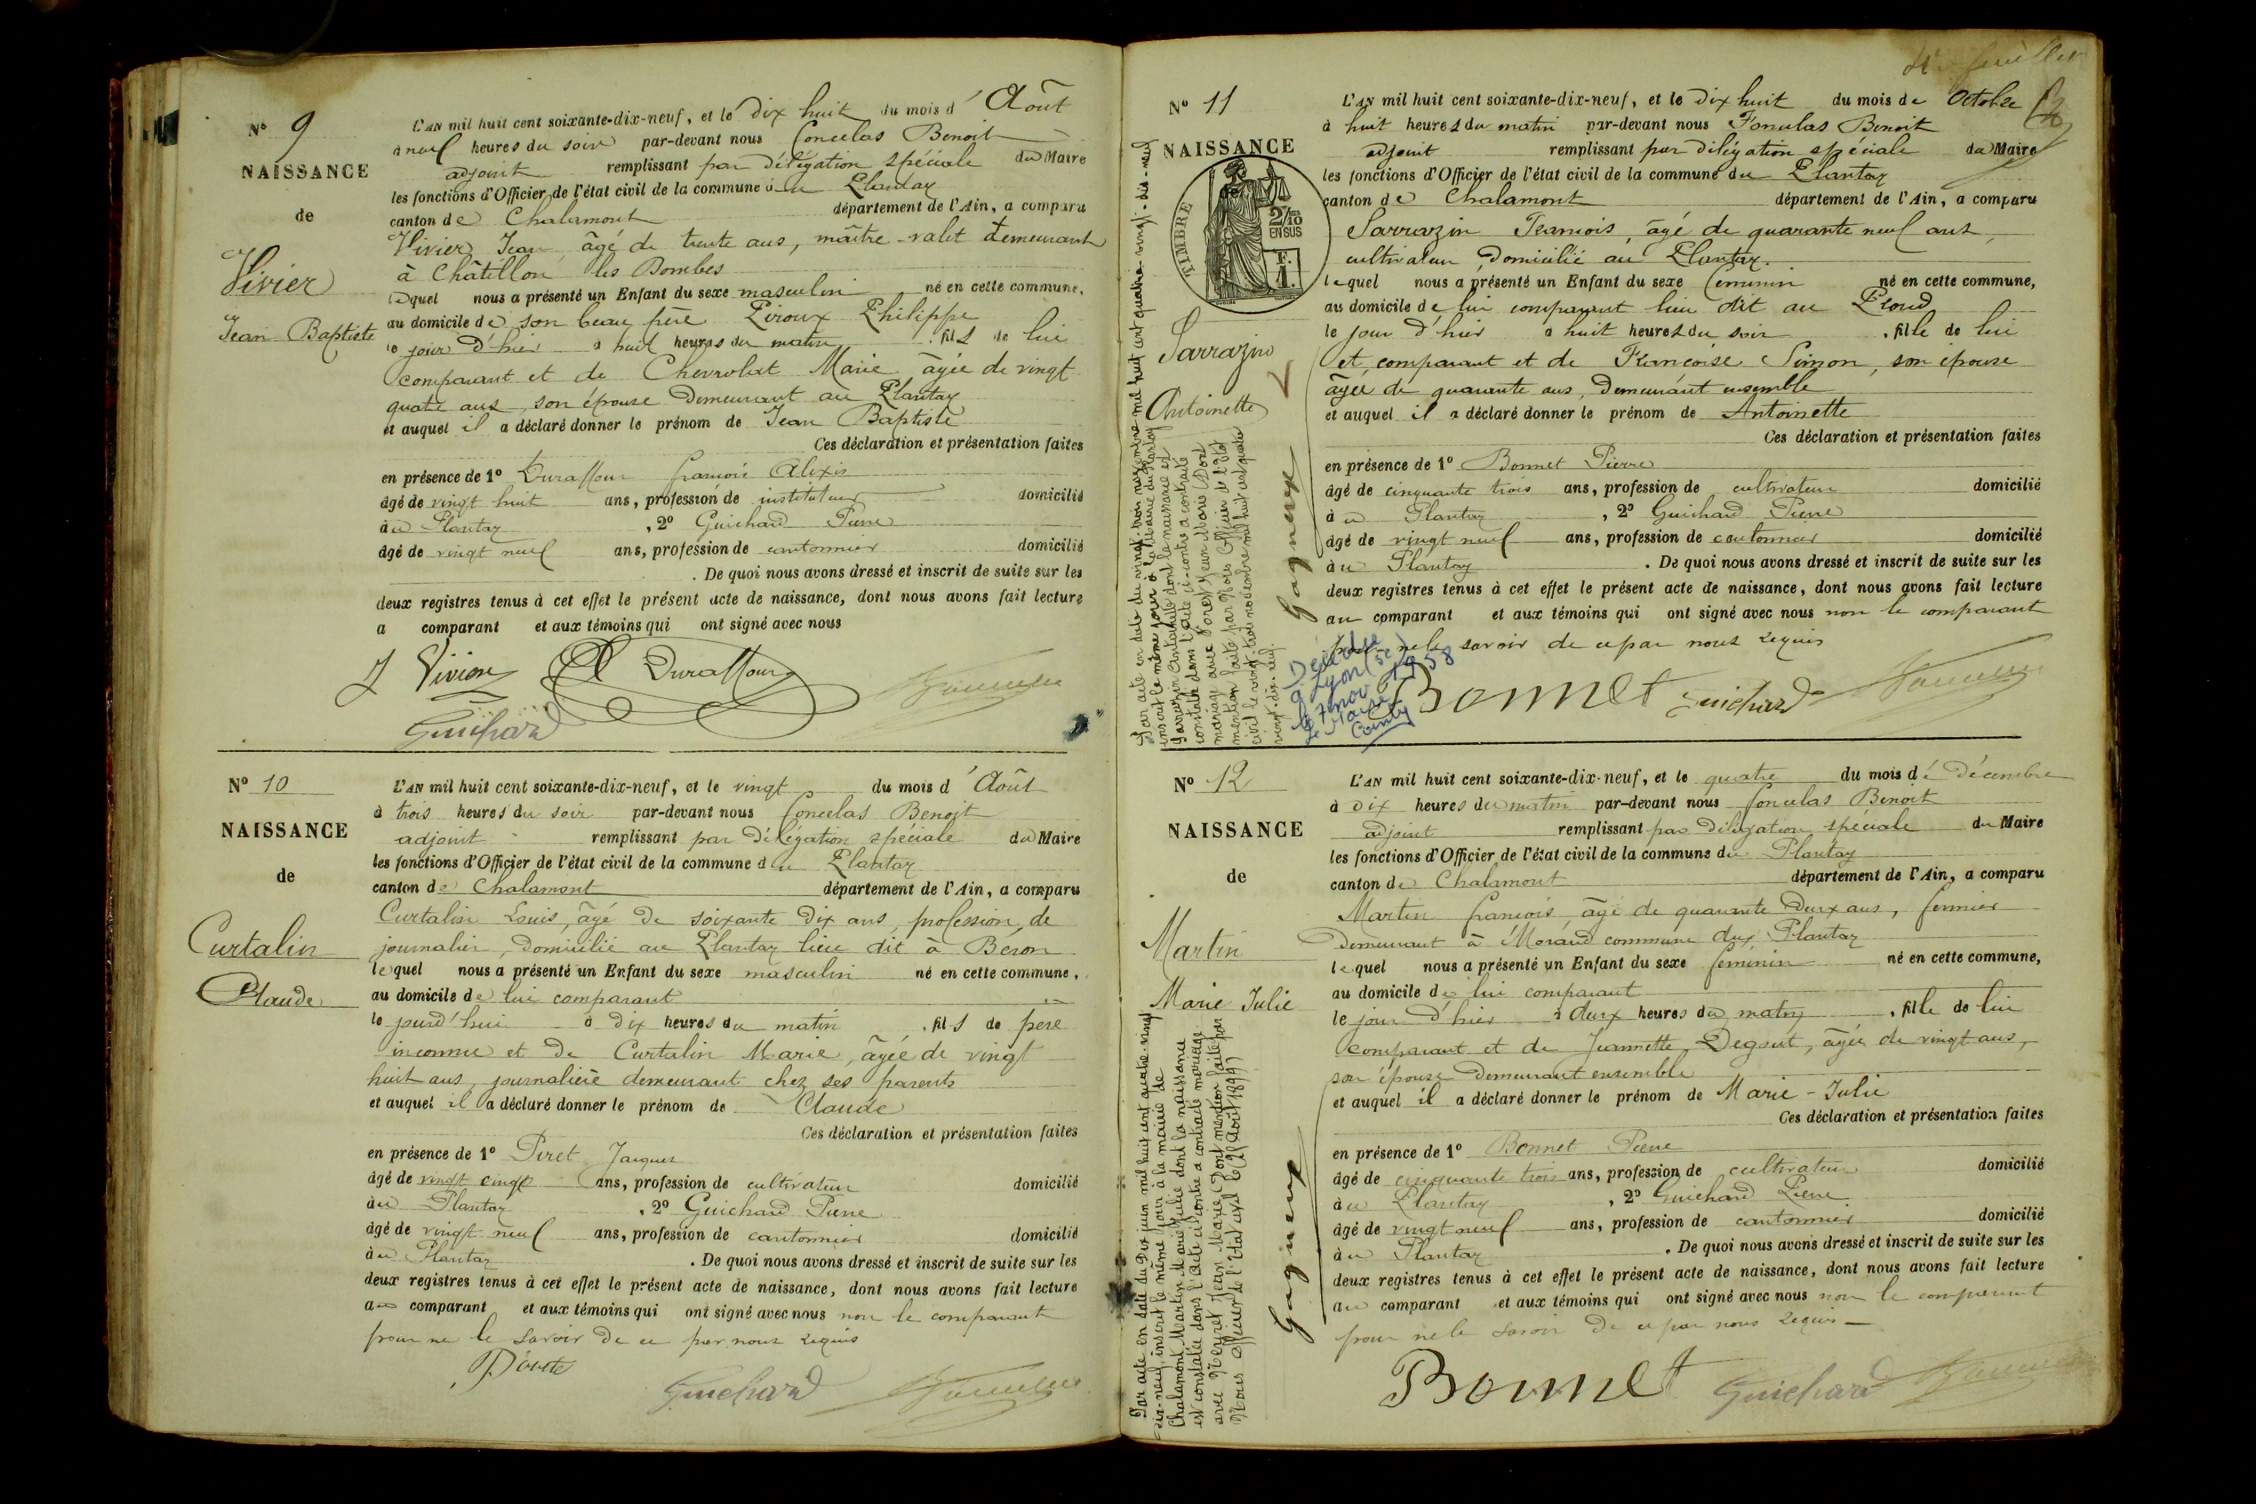 N° 9
NAISSANCE
de
Vivier
Jean Baptiste
L'AN mil huit cent soixante-dix-neuf, et le dix huit du mois d'Août
à neuf heures du soir par-devant nous Foncelas Benoit
adjoint remplissant par délégation spéciale du Maire
les fonctions d'Officier de l'état civil de la commune du Plantay
canton de Chalamont département de l'Ain, a comparu
Vivier Jean âgé de trente ans, maître-valet demeurant
à Châtillon les Dombes
lequel nous a présenté un Enfant du sexe masculin né en cette commune,
au domicile de son beau père Philippe
le jour d'hier à huit heures du matin, fils de lui
comparant et de Chevrolat Marie âgée de vingt
quatre ans, son épouse demeurant au Plantay
et auquel il a déclaré donner le prénom de Jean Baptiste
Ces déclaration et présentation faites
en présence de 1° Duraffour françois Alexis
âgé de vingt huit ans, profession de instituteur domicilié
au Plantay, 2° Guichard Pierre
âgé de vingt neuf ans, profession de cantonnier domicilié
. De quoi nous avons dressé et inscrit de suite sur les
deux registres tenus à cet effet le présent acte de naissance, dont nous avons fait lecture
a comparant et aux témoins qui ont signé avec nous
J Vivier Duraffour
Guichard
N° 10
NAISSANCE
de
Curtalin
Claude
L'AN mil huit cent soixante-dix-neuf, et le vingt du mois d'Août
à trois heures du soir par-devant nous Foncelas Benoit
adjoint remplissant par délégation spéciale du Maire
les fonctions d'Officier de l'état civil de la commune du Plantay
canton de Chalamont département de l'Ain, a comparu
Curtalin Louis, âgé de soixante dix ans, profession de
journalier, domicilié au Plantay lieu dit à Beron
lequel nous a présenté un Enfant du sexe masculin né en cette commune,
au domicile de lui comparant
le jourd'hui à dix heures du matin, fils de père
inconnu et de Curtalin Marie, âgée de vingt
huit ans, journalière demeurant chez ses parents
et auquel il a déclaré donner le prénom de Claude
Ces déclaration et présentation faites
en présence de 1° Piret Jacques
âgé de vingt cinq ans, profession de cultivateur domicilié
au Plantay, 2° Guichard Pierre
âgé de vingt neuf ans, profession de cantonnier domicilié
au Plantay. De quoi nous avons dressé et inscrit de suite sur les
deux registres tenus à cet effet le présent acte de naissance, dont nous avons fait lecture
au comparant et aux témoins qui ont signé avec nous non le comparant
pour ne le savoir de ce par nous requis
Guichard
N° 11
NAISSANCE
de
TIMBRE
2/10
EN SUS
F.
1.
Sarrazin
Antoinette
L'AN mil huit cent soixante-dix-neuf, et le dix huit du mois de Octobre
à huit heures du matin par-devant nous Foncelas Benoit
adjoint remplissant par délégation spéciale du Maire
les fonctions d'Officier de l'état civil de la commune du Plantay
canton de Chalamont département de l'Ain, a comparu
Sarrazin Francois, âgé de quarante neuf ans,
cultivateur domicilié au Plantay.
lequel nous a présenté un Enfant du sexe feminin né en cette commune,
au domicile de lui comparant lieu dit au
le jour d'hier à huit heures du soir, fille de lui
et, comparant et de Francoise Simon, son épouse
âgée de quarante ans, demeurant ensemble
et auquel il a déclaré donner le prénom de Antoinette
Ces déclaration et présentation faites
en présence de 1° Bonnet Pierre
âgé de cinquante trois ans, profession de cultivateur domicilié
au Plantay, 2° Guichard Pierre
âgé de vingt neuf ans, profession de cantonnier domicilié
au Plantay. De quoi nous avons dressé et inscrit de suite sur les
deux registres tenus à cet effet le présent acte de naissance, dont nous avons fait lecture
au comparant et aux témoins qui ont signé avec nous non le comparant
pour ne le savoir de ce par nous requis
Bonnet Guichard
Par acte en date du vingt trois novembre mil huit cent quatre-vingt-dix-neuf
inscrit le même jour à la Mairie du Plantay
Sarrazin Antoinette dont la naissance est
constatée dans l'acte ci-contre a contracté
mariage avec Forest Jean Marie. Dont
mention faite par Nous Officier de l'Etat
civil le vingt-trois novembre mil huit cent quatre
vingt-dix-neuf.
Gagneux
Décédée
à Lyon (5e)
le 7 nov 1958
Le Maire
N° 12
NAISSANCE
de
Martin
Marie Julie
L'AN mil huit cent soixante-dix-neuf, et le quatre du mois de Décembre
à dix heures du matin par-devant nous Foncelas Benoit
adjoint remplissant par délégation spéciale du Maire
les fonctions d'Officier de l'état civil de la commune du Plantay
canton de Chalamont département de l'Ain, a comparu
Martin francois, âgé de quarante deux ans, fermier
demeurant à Morand commune du Plantay
lequel nous a présenté un Enfant du sexe féminin né en cette commune,
au domicile de lui comparant
le jour d'hier à deux heures du matin, fille de lui
comparant et de Jeannette Degout, âgée de vingt ans,
son épouse demeurant ensemble
et auquel il a déclaré donner le prénom de Marie-Julie
Ces déclaration et présentation faites
en présence de 1° Bonnet Pierre
âgé de cinquante trois ans, profession de cultivateur domicilié
au Plantay, 2° Guichard Pierre
âgé de vingt neuf ans, profession de cantonnier domicilié
au Plantay. De quoi nous avons dressé et inscrit de suite sur les
deux registres tenus à cet effet le présent acte de naissance, dont nous avons fait lecture
au comparant et aux témoins qui ont signé avec nous non le comparant
pour ne le savoir de ce par nous requis
Bonnet Guichard
Par acte en date du Dix juin mil huit cent quatre-vingt
dix-neuf, inscrit le même jour à la mairie de
Chalamont Martin Marie Julie dont la naissance
est constatée dans l'acte ci-contre a contracté mariage
avec Jean Marie Dont mention faite par
Nous Officier de l'Etat civil le Août 1899
Gagneux